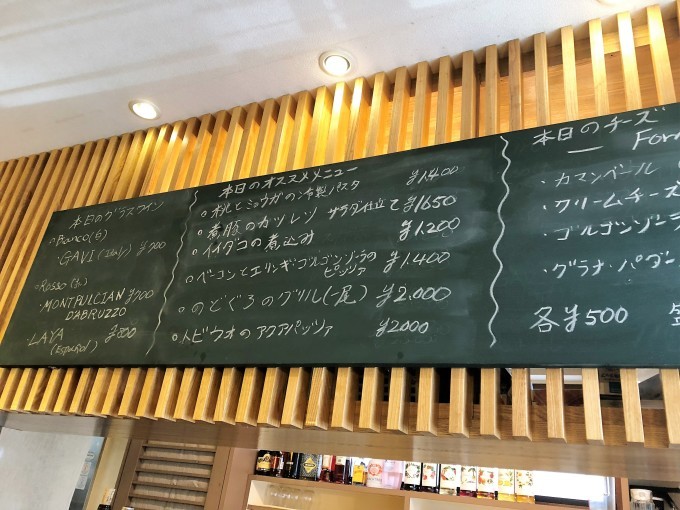 本日のグラスワイン
○Bianco(白)
・GAVI (Italy) ¥700
○Rosso (赤)
・MONTPULCIAN ¥700
D'ABRUZZO
・LAYA ¥700
(Español)
本日のオススメメニュー
○桃とミョウガの冷製パスタ ¥1.400
のカツレツ サラダ仕立て ¥1650
○イイダコの煮込み ¥1.200
○ベーコンとエリンギ・ゴルゴンゾーラの
ピッツァ ¥1.400
○のどぐろのグリル(一尾) ¥2.000
○トビウオのアクアパッツァ ¥2000
本日のチーズ
For
・カマンベール
・クリームチーズ
・ゴルゴンゾーラ
・グラナ・パダー
各¥500